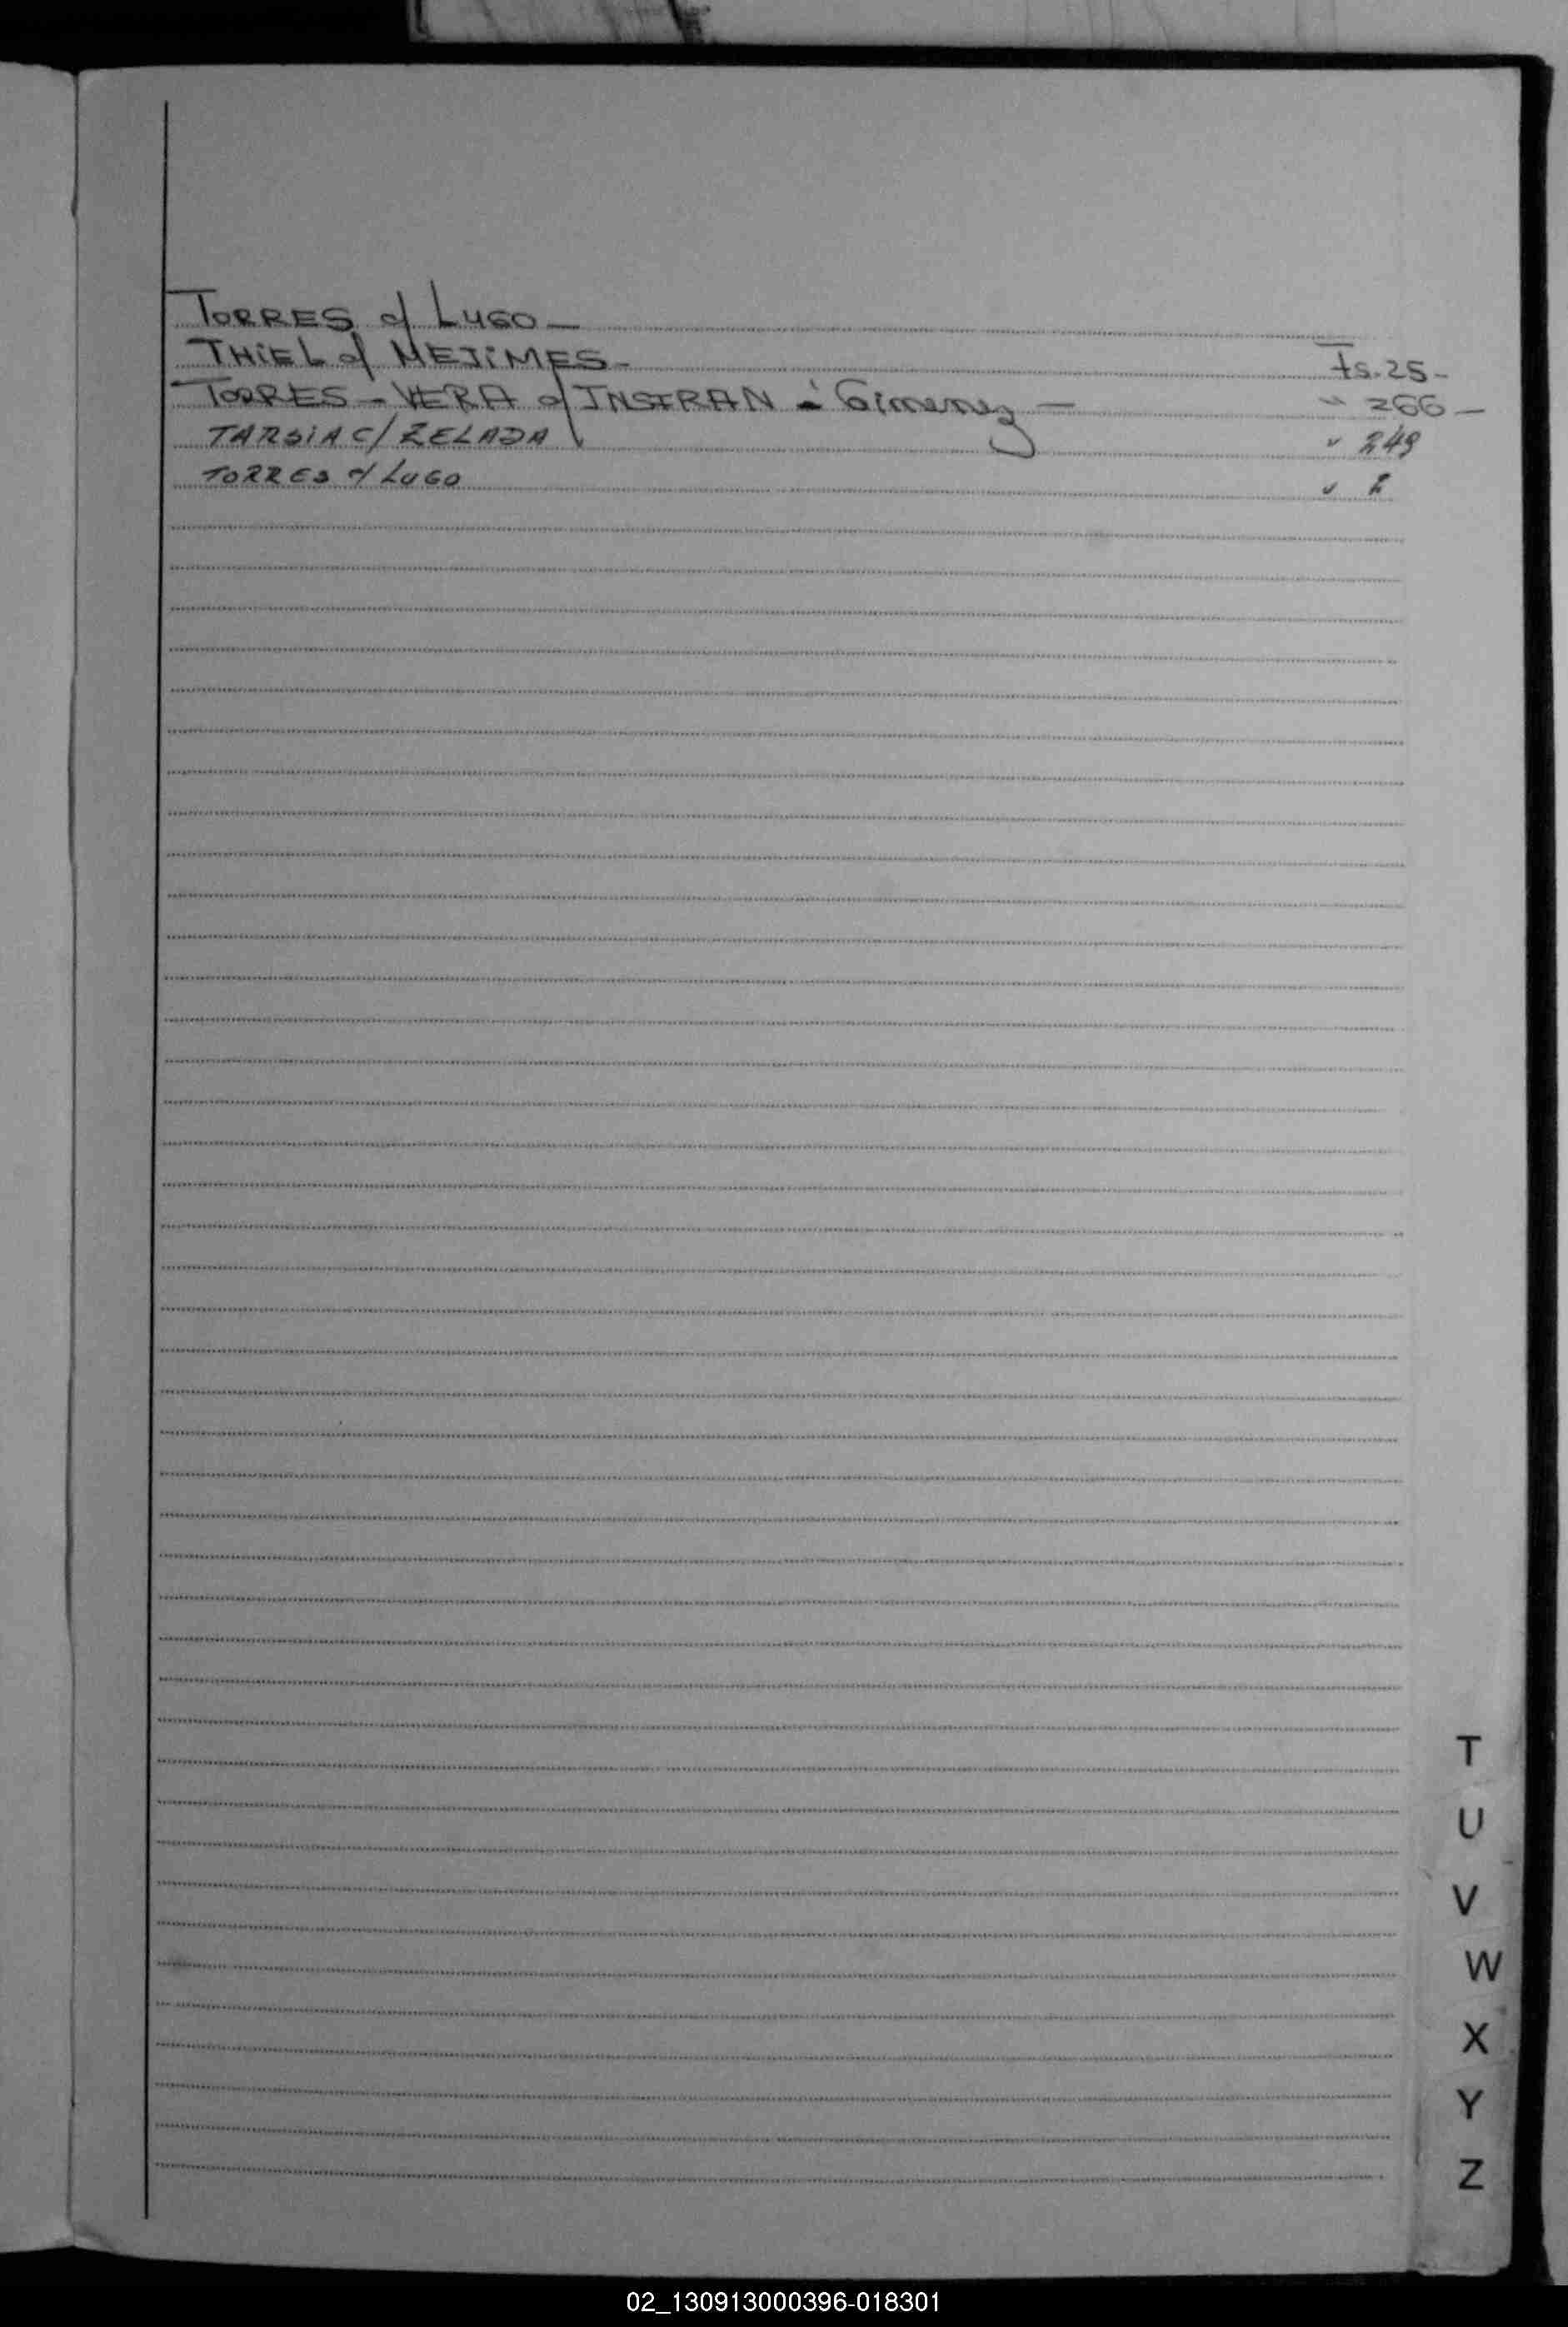 TORRES c/ LUGO —
THIEL c/ MEJIMES - Fs. 25 -
TORRES - VERA c/ INSFRAN - Gimenez — " 266 —
TARSIA C/ ZELADA " 249
TORRES c/ LUGO " 2
T
U
V
W
X
Y
Z
02_130913000396-018301